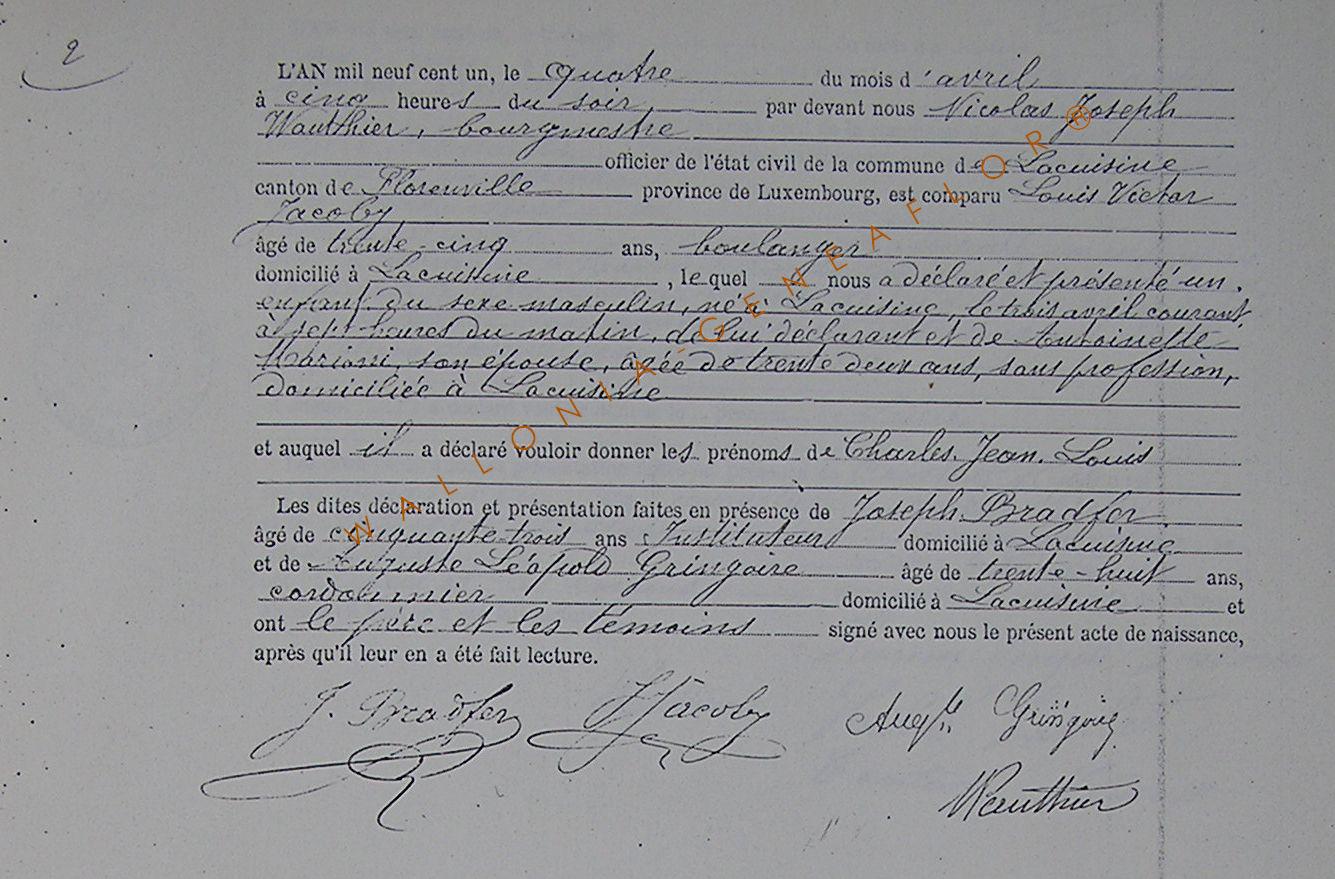 2
L'AN mil neuf cent un, le quatre du mois d'avril
à cinq heures du soir, par devant nous Nicolas Joseph
Wauthier, bourgmestre
officier de l'état civil de la commune de Lacuisine
canton de Florenville province de Luxembourg, est comparu Louis Victor
Jacoby,
âgé de trente-cinq ans, boulanger
domicilié à Lacuisine, le quel nous a déclaré et présenté un
enfant du sexe masculin, né à Lacuisine, le trois avril courant,
à sept heures du matin, de lui déclarant et de Antoinette
son épouse, âgée de trente deux ans, sans profession,
domiciliée à Lacuisine
et auquel il a déclaré vouloir donner les prénoms de Charles Jean Louis
Les dites déclaration et présentation faites en présence de Joseph Bradfer,
âgé de cinquante-trois ans Instituteur domicilié à Lacuisine
et de Auguste Léopold Gringoire âgé de trente-huit ans,
cordonnier domicilié à Lacuisine et
ont le père et les témoins signé avec nous le présent acte de naissance,
après qu'il leur en a été fait lecture.
J. Bradfer Jacoby Aug.te Gringoire
Wauthier
WALLONIA-GENEAFLOR®